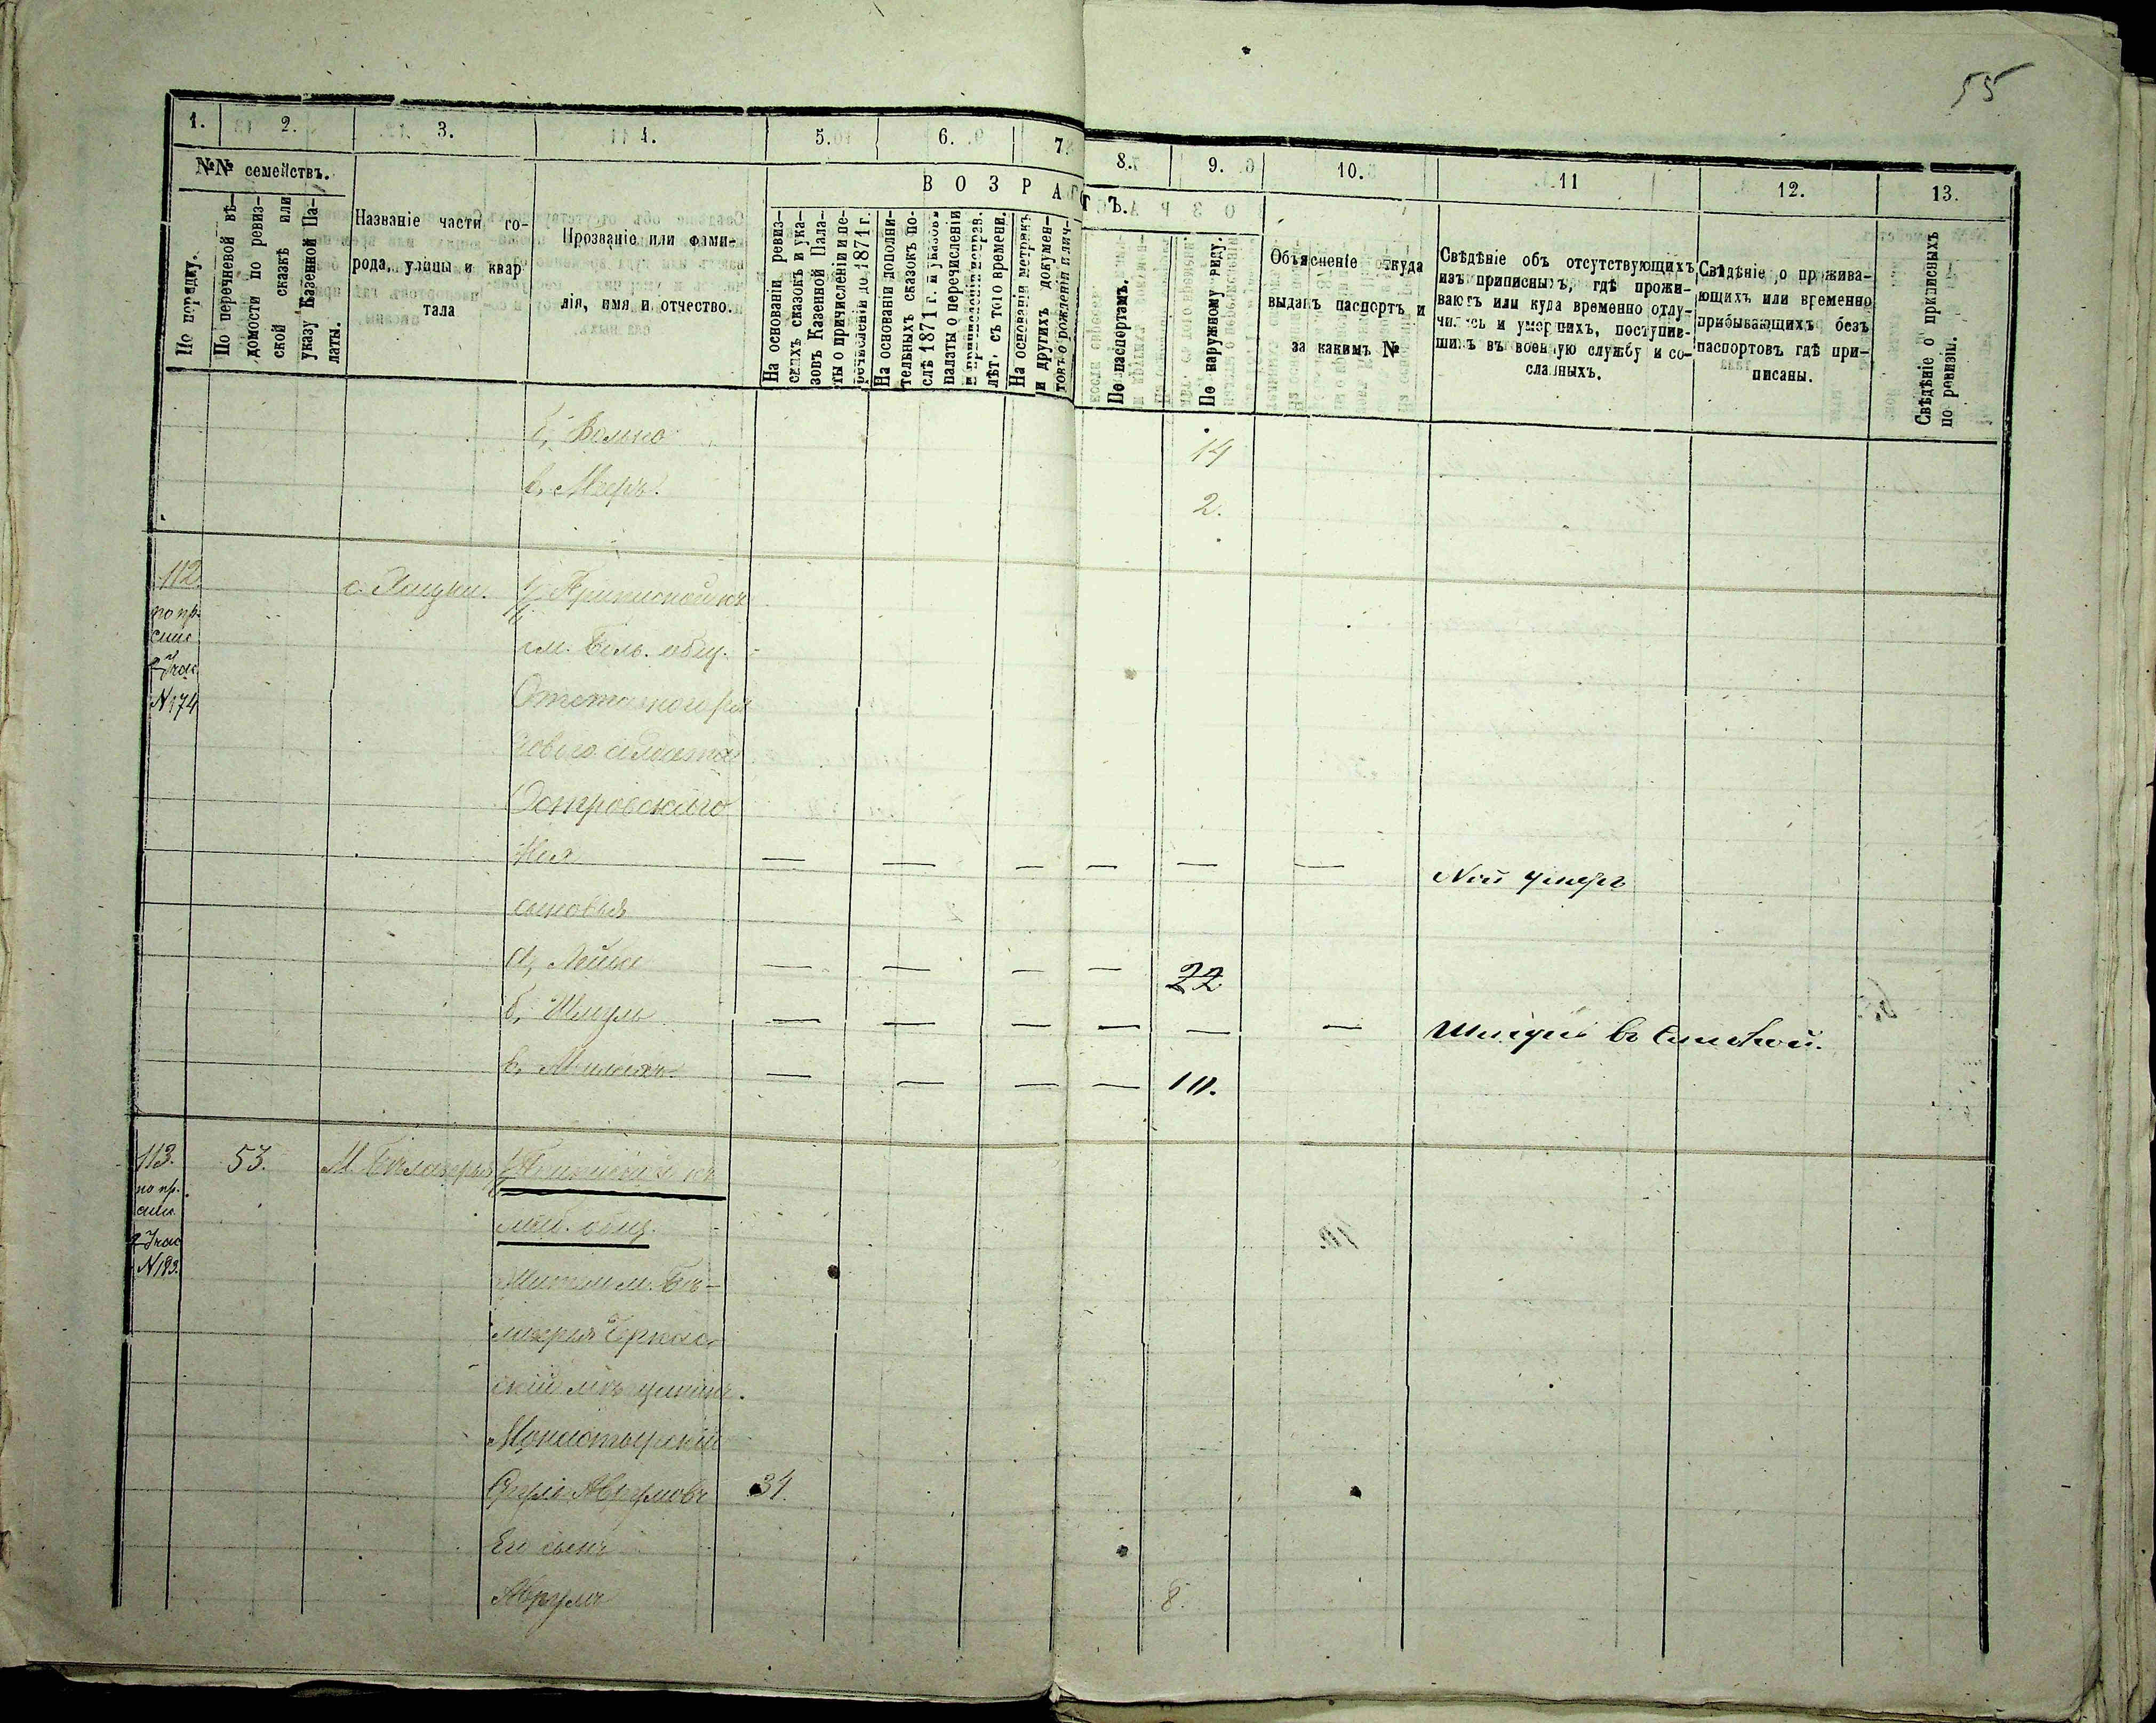 55
1. 2. 3. 4. 5. 6. 7. 8. 9. 10. 11 12. 13.
№№ семействъ.
По порядку.
По перечневой вѣ-
домости по ревиз-
ской сказкѣ или
указу Казенной Па-
латы.
Названіе части го-
рода, улицы и квар
тала
Прозваніе или фами-
лія, имя и отчество.
ВОЗРАСТЪ.
На основаніи ревиз-
скихъ сказокъ и ука-
зовъ Казенной Пала-
ты о причисленіи и пе-
речисленіи до 1871 г.
На основаніи дополни-
тельныхъ сказокъ по-
слѣ 1871 г. и указовъ
палаты о перечисленіи
лѣтъ съ того времени.
На основаніи метрикъ
и другихъ докумен-
товъ о рожденіи и лич-
По паспортамъ.
По наружному виду.
Объясненіе откуда
выданъ паспортъ и
за какимъ №
Свѣдѣніе объ отсутствующихъ
изъ приписныхъ, гдѣ прожи-
ваютъ или куда временно отлу-
чились и умершихъ, поступив-
шихъ въ военную службу и со-
сланныхъ.
Свѣдѣніе о прожива-
ющихъ или временно
прибывающихъ безъ
паспортовъ гдѣ при-
писаны.
Свѣдѣніе о приписныхъ
по ревизіи.
б, Волько 14
в, Мееръ. 2.
112 с.
по пр.
N 174
м. Бѣл. общ.
Островскаго
Ноя — — — — — — Ной умеръ
сыновья
а, Лейба — — — — 22
б, Шмуль — — — — — — Шмуль въ
в, — — — — 10.
113. 53. М. Бѣлозерье
по пр.
N 183.
общ.
Жители м. Бѣ-
лозерья Черкас-
скій мѣщанин.
Монастырскій
Срулъ Аврумовъ 34.
Его сынъ
Аврумъ 8.